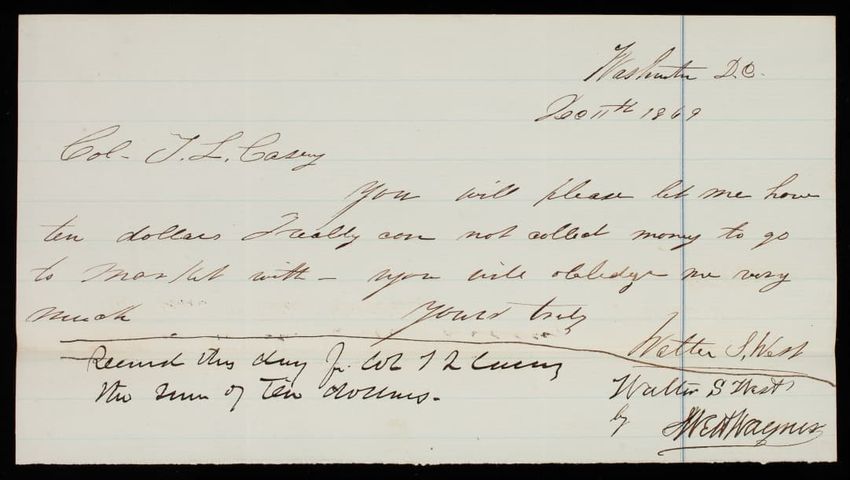 Washington D.C.
Dec 11th 1869
Col- T. L. Casey
You will please let me have
ten dollars I really can not collect money to go
to Market with - you will obledge me very
much Yours truly
Walter S. West
Received this day fr. Col T L Casey
the sum of Ten dollars.
Walter S West
by